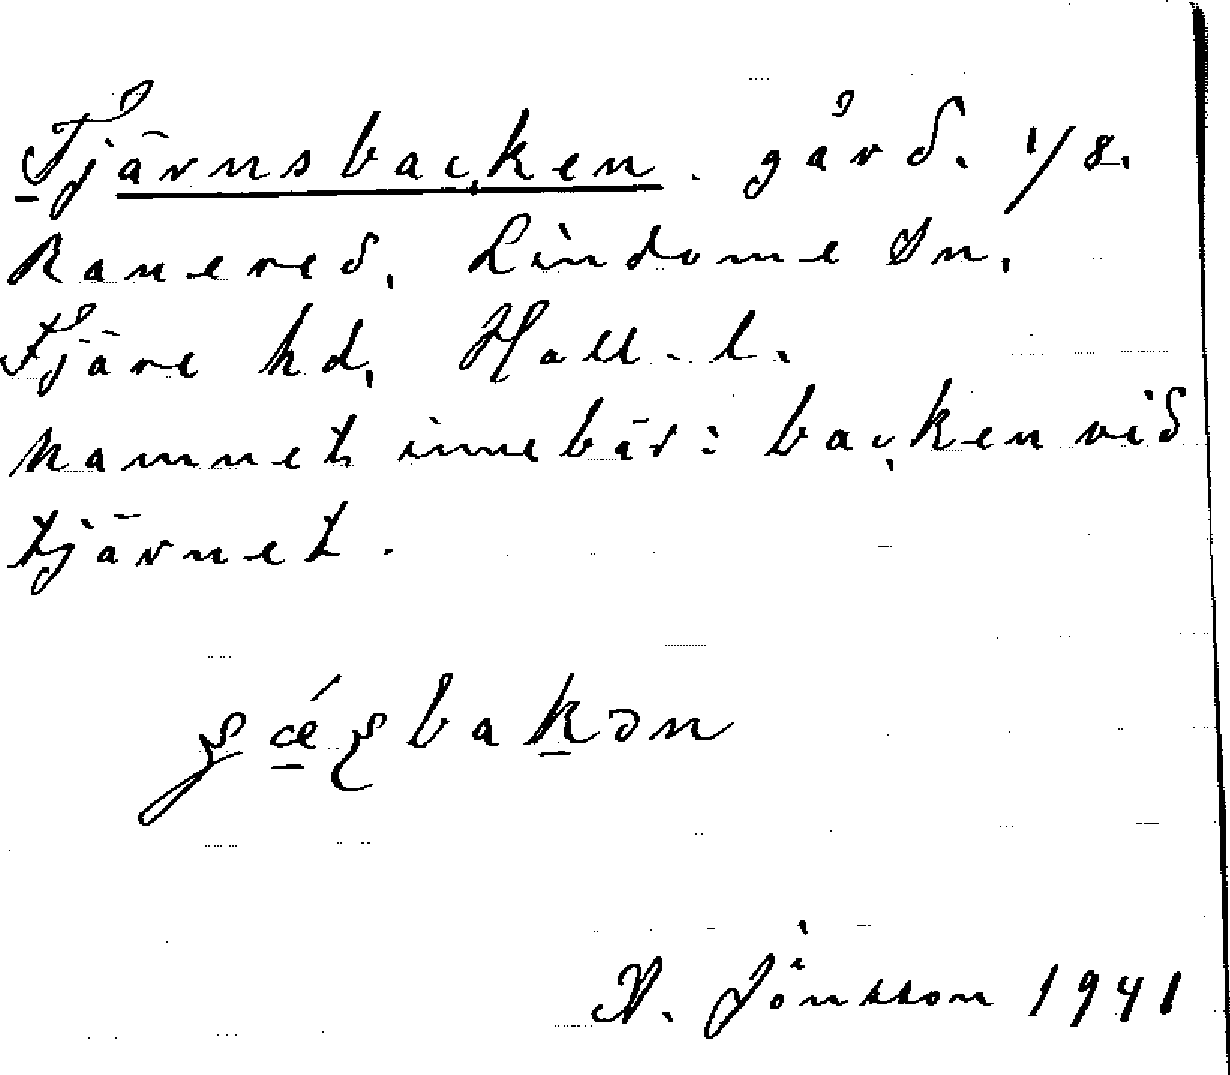 Tjärnsbacken. gård. 1/8.
Ranered, Lindome Sn,
Fjäre hd, Hall. l.
Namnet innebär: backen vid
tjärnet.
Jönsson 1941